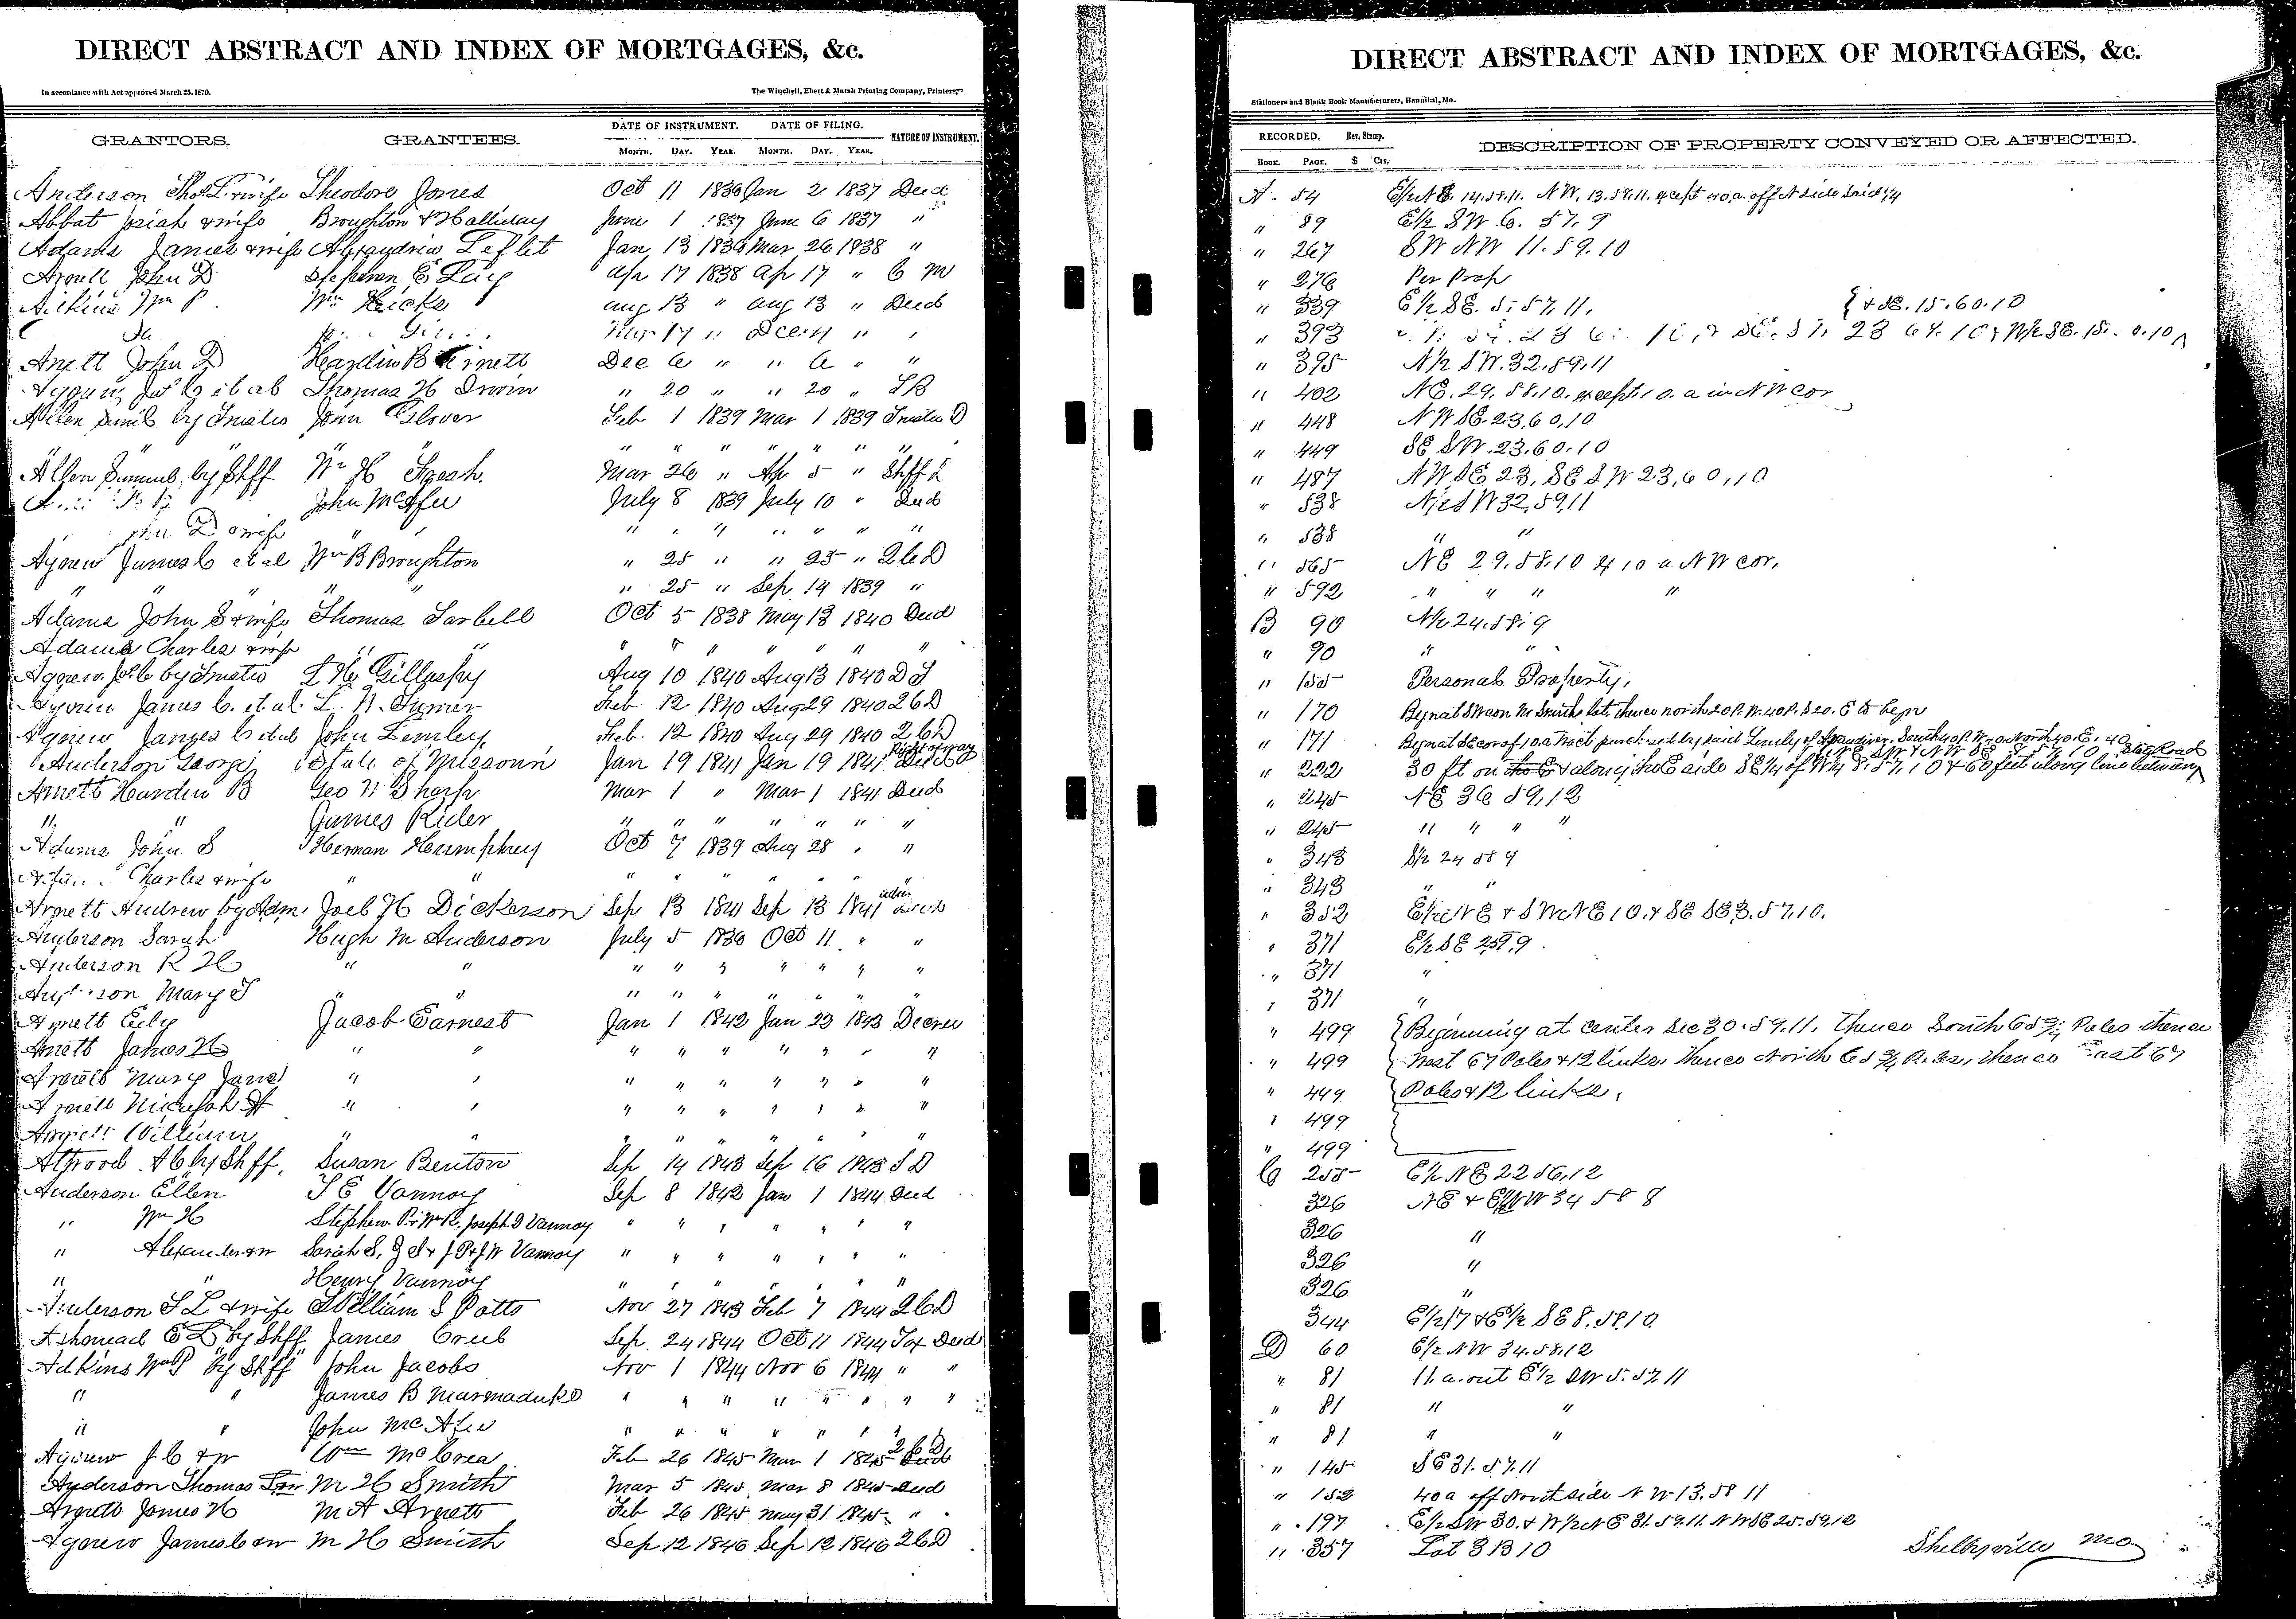 DIRECT ABSTRACT AND INDEX OF MORTGAGES, &c.
In accordance with Act approved March 25, 1870.
The Winchell, Ebert & Marsh Printing Company, Printers,
GRANTORS. GRANTEES. DATE OF INSTRUMENT. DATE OF FILING. NATURE OF INSTRUMENT.
MONTH. DAY. YEAR. MONTH. DAY. YEAR.
Anderson Thos L & wife Theodore Jones Oct 11 1836 Jan 2 1837 Deed
Abbat Josiah & wife Broughton & Holliday June 1 1837 June 6 1837 "
Adams James & wife Alexandria Leflet Jan 13 1836 Mar 26 1838 "
John D Stephen E Lay Apr 17 1838 Ap 17 " C M
Adkins Wm P Wm Hicks Aug 13 " Aug 13 " Deed
Do 17 " Dec "
Anett John D Hardin B Arnett Dec 6 " " 6 " "
Agnew Jas C et al Thomas H Irwin " 20 " " 20 " T B
Allen Saml by Trustee John Glover Feb 1 1839 Mar 1 1839 Trustee D
" " " " " " " "
Allen Samuel by Shff Wm H Mar 26 " Ap 5 " Shff D
John McAfee July 8 1839 July 10 " Deed
John D & wife " " " " " " "
Agnew James C et al Wm B Broughton " 25 " " 25 " 2 C D
" " " " 25 " Sep 14 1839 "
Adams John S & wife Thomas Sarbell Oct 5 1838 May 13 1840 Deed
Adams Charles & wife " " " " " " " "
Agnew Jas C by Trustee L H Gillaspy Aug 10 1840 Aug 13 1840 D T
Agnew James C. et al L. N. Turner Feb 12 1840 Aug 29 1840 2 C D
Agnew James C et al John Lemley Feb. 12 1840 Aug 29 1840 2 C D
Anderson George State of Missouri Jan 19 1841 Jan 19 1841 Right of way Deed
Arnett Harden B Geo N Sharp Mar 1 " Mar 1 1841 Deed
" " James Rider " " " " " " "
Adams John S Herman Humphrey Oct 7 1839 Aug 28 " "
Adams Charles & wife " " " " " " " "
Arnett Andrew by Adm. Joel H Dickerson Sep 13 1841 Sep 13 1841 Adm Deed
Anderson Sarah Hugh M Anderson July 5 1836 Oct 11 " "
Anderson R H " " " " " " " " "
Anderson Mary J " " " " " " " " "
Arnett Eily Jacob Earnest Jan 1 1842 Jan 23 1843 Decree
Arnett James H " " " " " " " " "
Arnett Mary Jane " " " " " " " " "
Arnett " " " " " " " " "
Arnett William " " " " " " " " "
Atwood A C by Shff. Susan Benton Sep 14 1843 Sep 16 1843 S D
Anderson Ellen J E Vannoy Sep 8 1842 Jan 1 1844 Deed
" Wm H Stephen P & Wm R. Joseph D Vannoy " " " " " " "
" Alexander & w Sarah S, J S & J P & J W Vannoy " " " " " " "
" " Henry Vannoy " " " " " " "
Anderson T L & wife William S Potts Nov 27 1843 Feb 7 1844 2 C D
Ashmead E L by Shff James Creel Sep. 24 1844 Oct 11 1844 Tax Deed
Adkins Wm P by Shff John Jacobs Nov 1 1844 Nov 6 1844 " "
" " James B Marmaduke " " " " " " " "
" " John McAfee " " " " " " "
Agnew J C & w Wm McCrea Feb 26 1845 Mar 1 1845 2 C D
Anderson Thomas L & w M H Smith Mar 5 1845 Mar 8 1845 Deed
Arnett James H M A Arnett Feb 26 1845 May 31 1845 "
Agnew James C & w M H Smith Sep 12 1846 Sep 12 1846 2 C D
DIRECT ABSTRACT AND INDEX OF MORTGAGES, &c.
Stationers and Blank Book Manufacturers, Hannibal, Mo.
RECORDED. Rev. Stamp. DESCRIPTION OF PROPERTY CONVEYED OR AFFECTED.
BOOK. PAGE. $ Cts.
A. 54 E/2 NE. 14.58.11. NW. 13.58.11. except 40 a. off N side said 1/4
" 89 E 1/2 SW 6. 57. 9
" 267 SW NW 11. 59. 10
" 276 Per Prop
" 339 E 1/2 SE. 5. 57. 11. { & SE. 15. 60. 10
" 393 W/2 SE. 15. 60.10
" 395 N/2 SW. 32. 59. 11
" 402 NE. 29. 58. 10. except 10. a in NW cor
" 448 NW SE. 23. 60. 10
" 449 SE SW. 23. 60. 10
" 487 NW SE 23. SE SW 23, 60, 10
" 538 N/2 SW 32, 59, 11
" 538 " "
" 565 NE 29. 58. 10 ex 10 a. NW cor.
" 592 " " " "
B 90 N/2 24. 58. 9
" 90 " "
" 155 Personal Property,
" 170 Beg n at SW cor M Smiths lot, thence north 20 P. W. 40 P. S 20. E to begn
" 171 Beg n at SE cor of 10 a Tract purchased by said Lemley of Vandiver. South 40 P. W 40 North 40 E. 40
" 222 30 ft on the E & along the E side SE 1/4 of NW 8. 57. 10 & 60 feet along line between State Road
" 245 NE 36 59, 12
" 245 " " " "
" 343 S/2 24 58 9
" 343 " "
" 352 E/2 NE & SW NE 10. & SE SE 3. 57. 10.
" 371 E/2 SE 25 9, 9
" 371 "
" 371 "
" 499 { Beginning at center Sec 30. 59. 11. thence South 65 3/4 Poles thence
" 499 West 67 Poles & 12 links. thence North 65 3/4 Poles, thence East 67
" 499 Poles & 12 links.
" 499
" 499
C 255 E/2 NE 22 56, 12
326 NE & E/2 NW 34 58 8
326 "
326 "
326 "
344 E/2 17 & E 1/2 SE 8. 58. 10
D 60 E 1/2 NW 34. 58. 12
" 81 11. a. out E 1/2 SW 5. 57. 11
" 81 " "
" 81 " "
" 145 SE 31. 57. 11
" 152 40 a off North side NW 13. 58 11
" 197 E/2 SW 30. & W/2 NE 31. 59. 11. NW SE 25. 59. 12
" 357 Lot 3 B 10 Shelbyville Mo